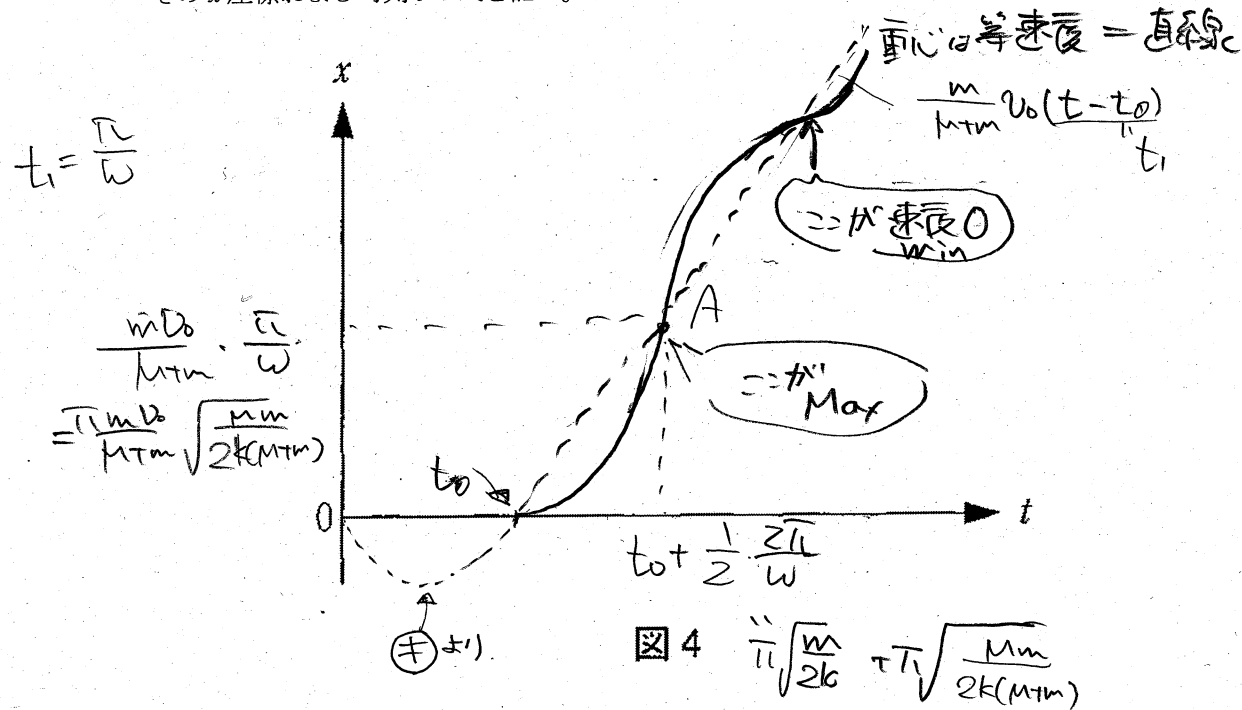 x
重心は等速度=直線
t₁ = π/ω
m/(M+m) v₀(t-t₀)
t₁
ここが速度0
min
A
mv₀/(M+m) · π/ω
= πmv₀/(M+m) √(Mm/2k(M+m))
ここが
Max
t₀
0
t
t₀ + 1/2 · 2π/ω
キより
図4
π√(m/2k) + π√(Mm/2k(M+m))